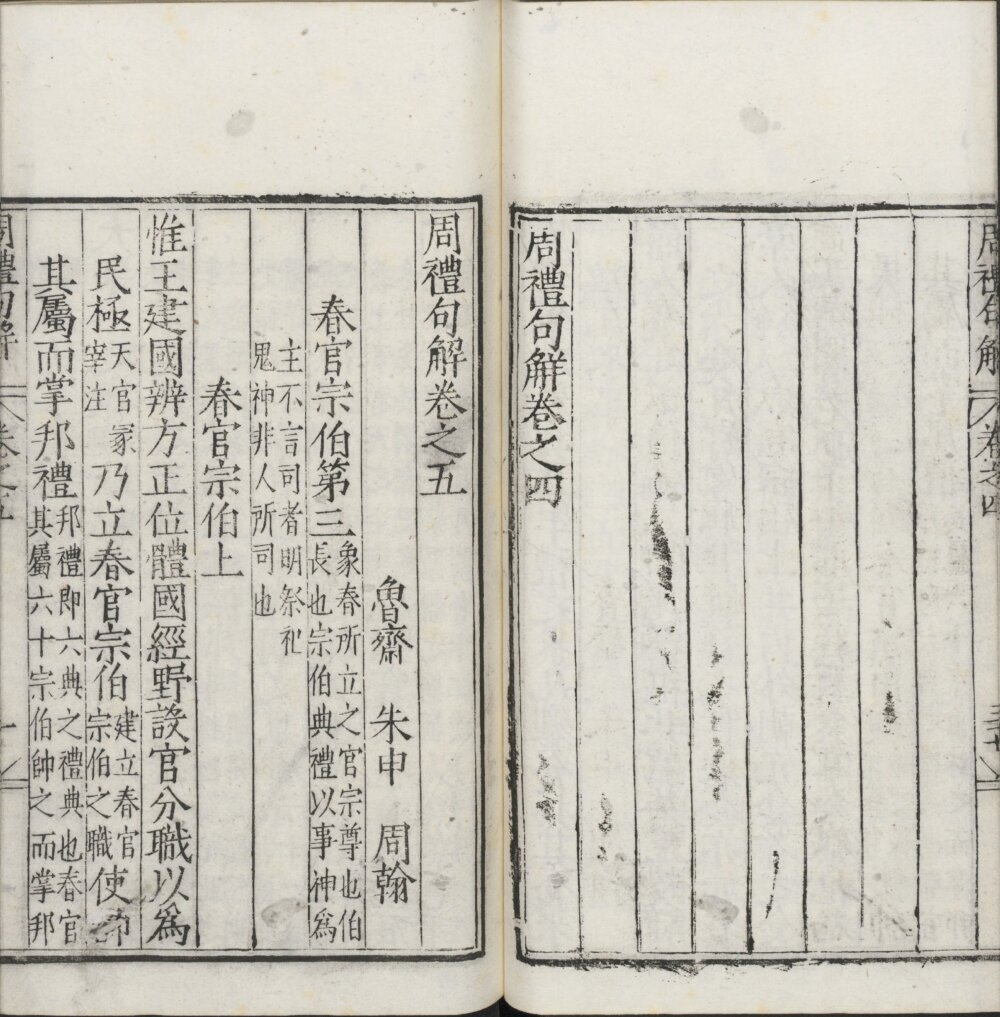 周禮句解 卷之四
周禮句解卷之四
周禮句解卷之五
魯齋 朱申 周翰
春官宗伯第三 象春所立之官宗尊也伯長也宗伯典禮以事神爲
主不言司者明祭祀鬼神非人所司也
春官宗伯上
惟王建國辨方正位體國經野設官分職以爲
民極 天官冢宰注 乃立春官宗伯 建立春官宗伯之職 使帥
其屬而掌邦禮 邦禮即六典之禮典也春官其屬六十宗伯帥之而掌邦
周禮句解 卷之五